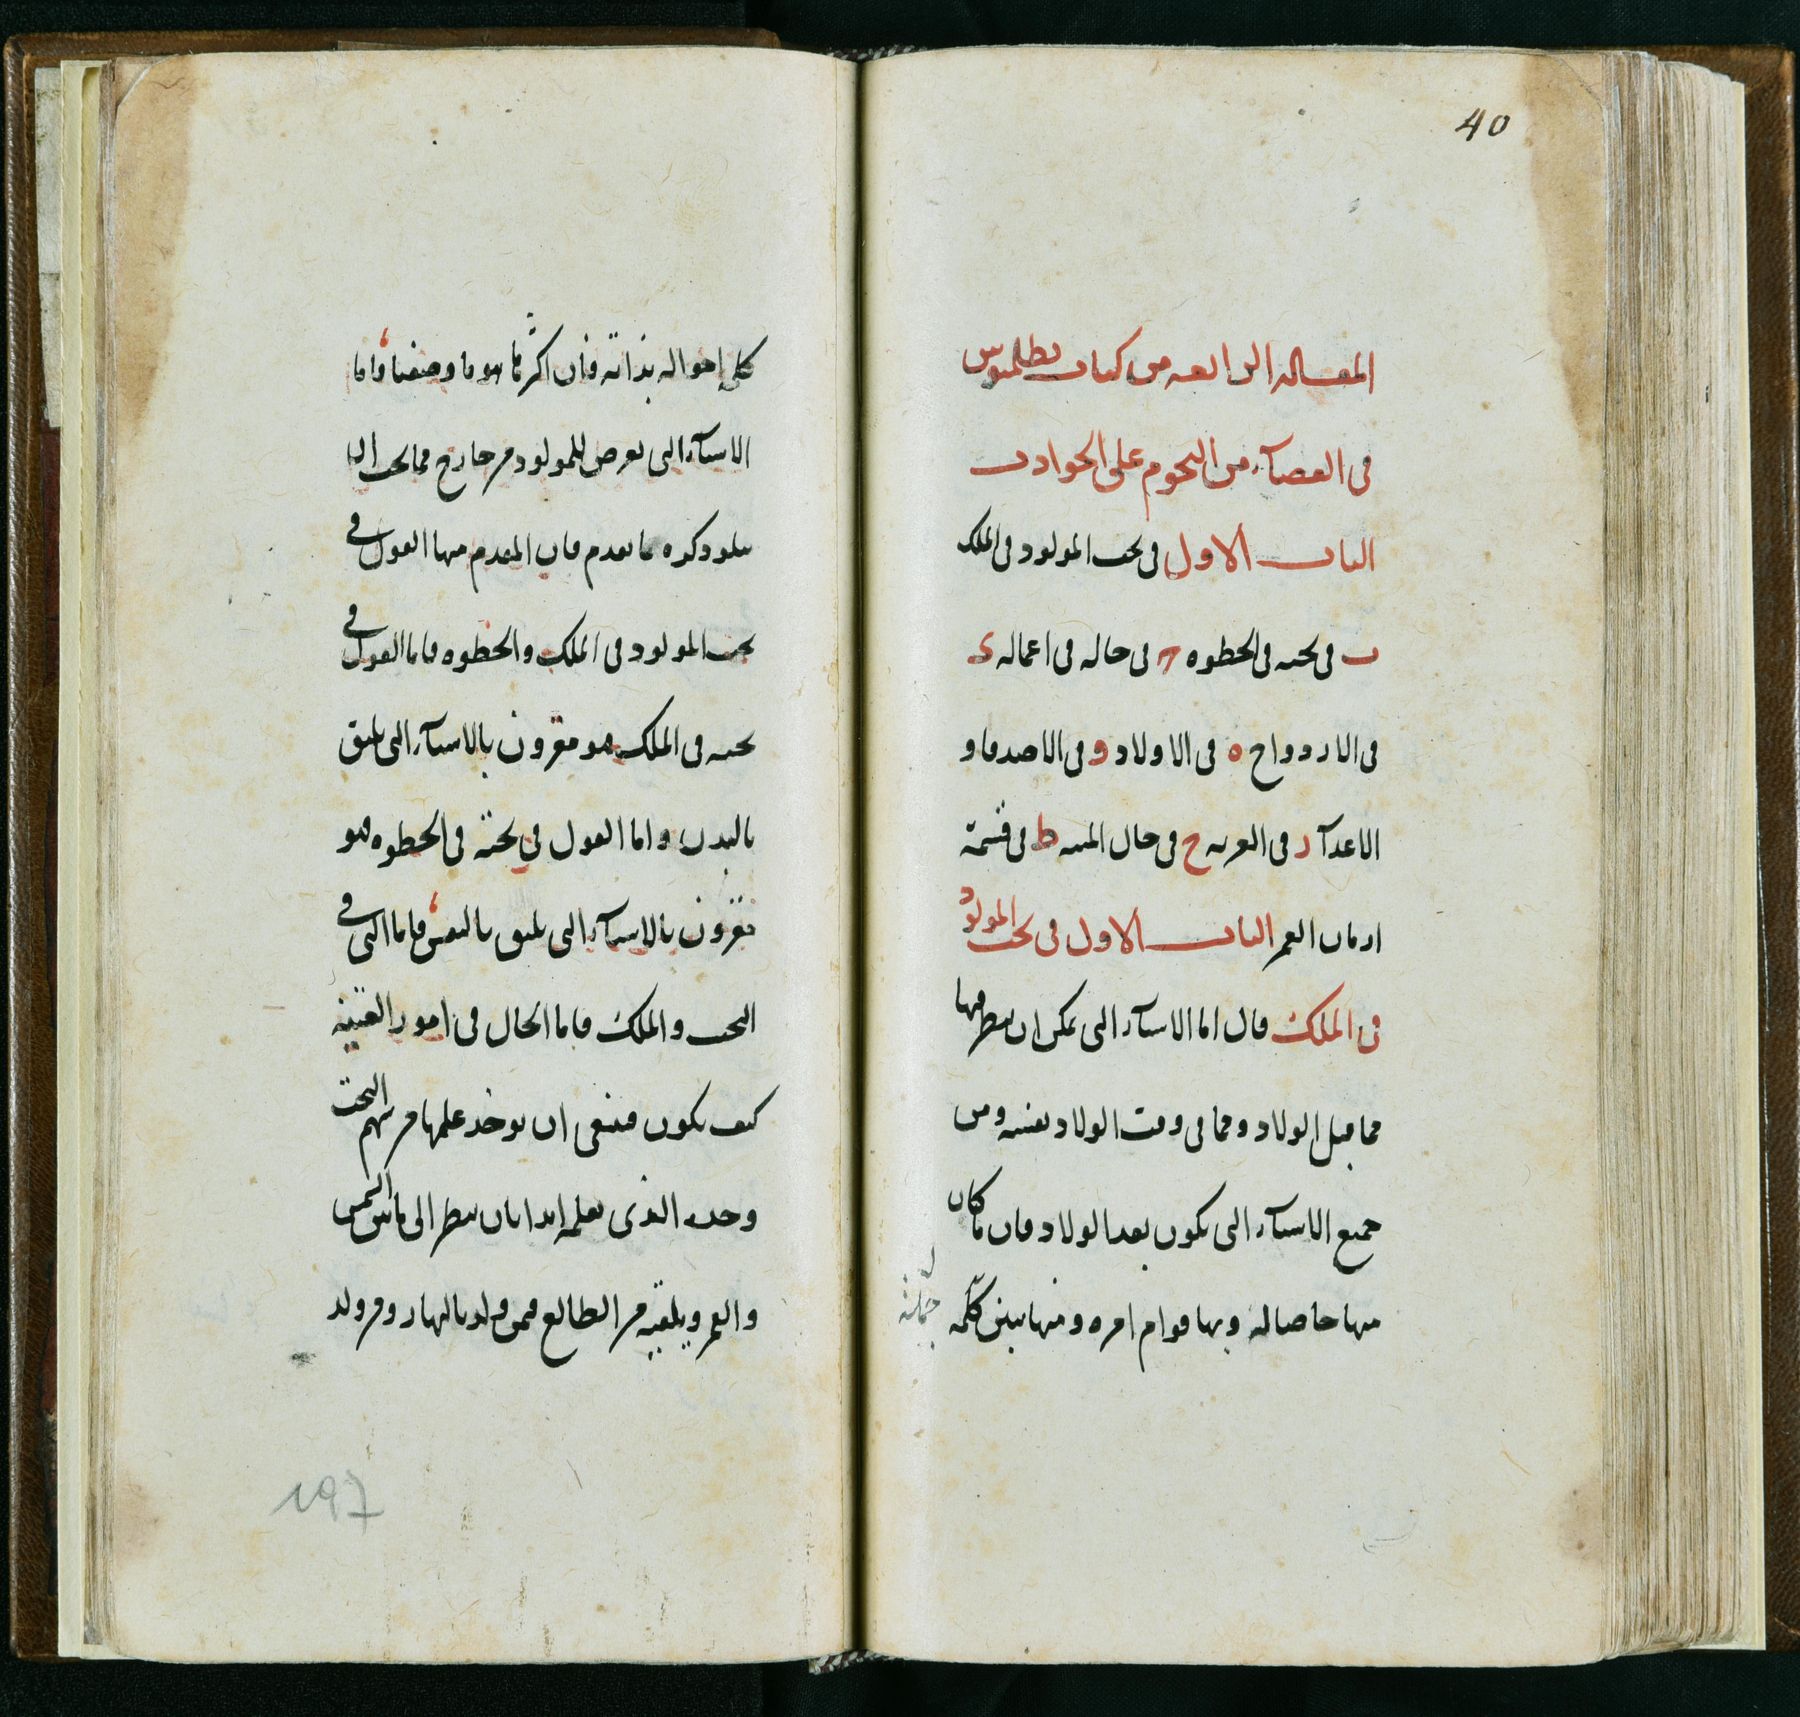 40
المقالة الرابعة من كتاب بطلميوس
في القضاء من النجوم على الحوادث
الباب الاول في بخت المولود في الملك
ب في بخته في الحظوه ج في حاله في اعماله د
في الازدواج ه في الاولاد و في الاصدقا و
الاعدآ ز في الغربه ح في حال المنيه ط في قسمة
ازمان العمر الباب الاول في بخت المولود
في الملك قال اما الاشيآء التي يمكن ان ينظر فيها
مما قبل الولاد ومما في وقت الولاد نفسه ومن
جميع الاشيآء التي تكون بعد الولاد فان ما كان
منها خاصا له وبها قوام امره ومنها يتبين كلّه
جملة
كلي احواله بذاته فان اكثر ما هو ما وصفنا واما
الاشيآء التي تعرض للمولود من خارج فما يجب ان
يتلو ذكره ما تقدم فان المقدم منها القول في
بخت المولود في الملك والحظوه فاما القول في
بخته في الملك هو مقرون بالاشيآء التي تليق
بالبدن واما القول في بخته في الحظوه هو
مقرون بالاشيآء التي تليق بالنفس فاما التي في
البخت والملك فاما الحال في امور القنيه
كيف يكون فينبغي ان يوخذ علمها من سهم البخت
وحده الذي نعلمه ابدا بان ينظر الى ما بين الشمس
والقمر ويلقيه من الطالع فمن ولد بالنهار ومن ولد
197